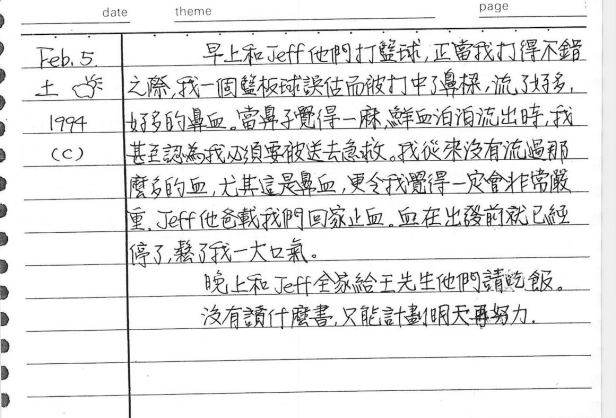 date theme page
Feb. 5. 早上和Jeff他們打籃球,正當我打得不錯
土 之際,我一個籃板球誤估而被打中了鼻樑,流了好多,
1994 好多的鼻血。當鼻子覺得一麻,鮮血泊泊流出時,我
(C) 甚至認為我必須要被送去急救。我從來沒有流過那
麼多的血,尤其這是鼻血,更令我覺得一定會非常嚴
重. Jeff他爸載我們回家止血。血在出發前就已經
停了,鬆了我一大口氣。
晚上和Jeff全家給王先生他們請吃飯。
沒有讀什麼書,只能計劃明天再努力.